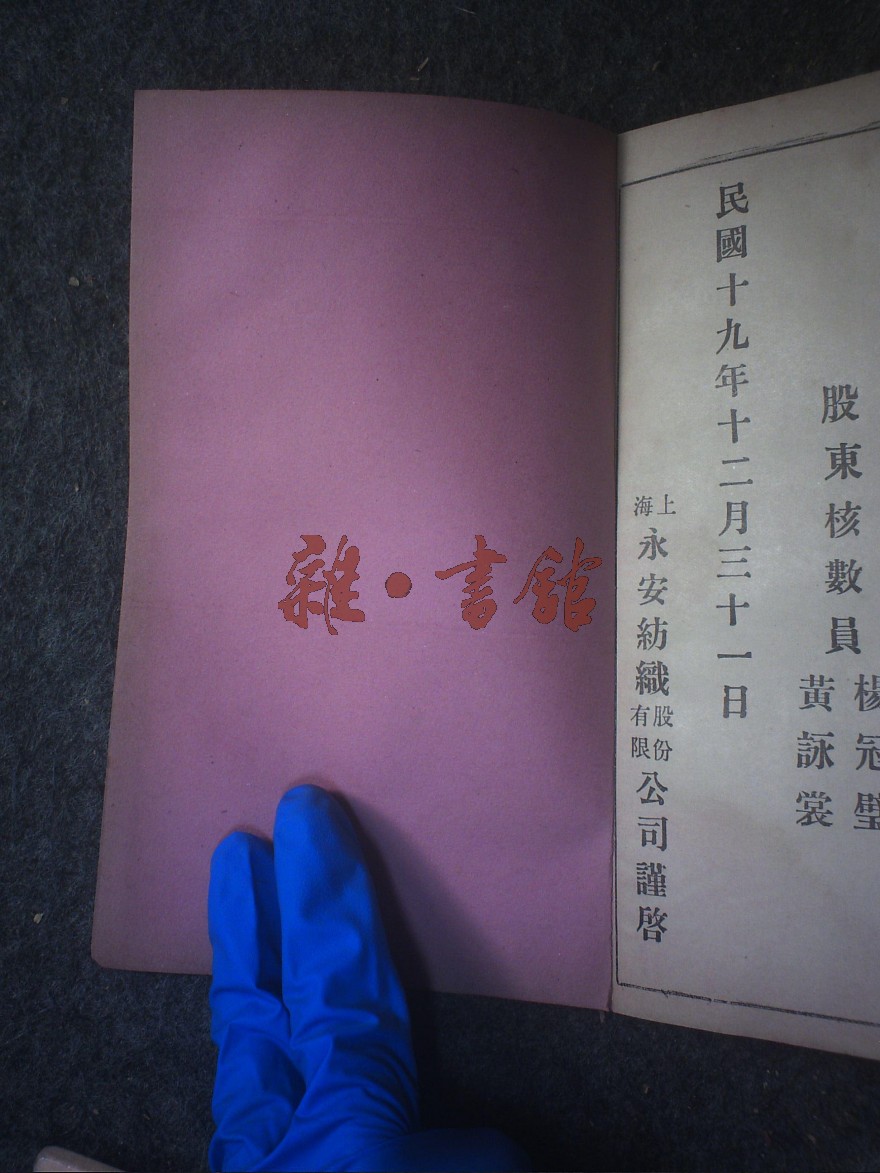 股東核數員
楊冠璧
黃詠裳
民國十九年十二月三十一日
上海永安紡織股份有限公司謹啓
雜·書館